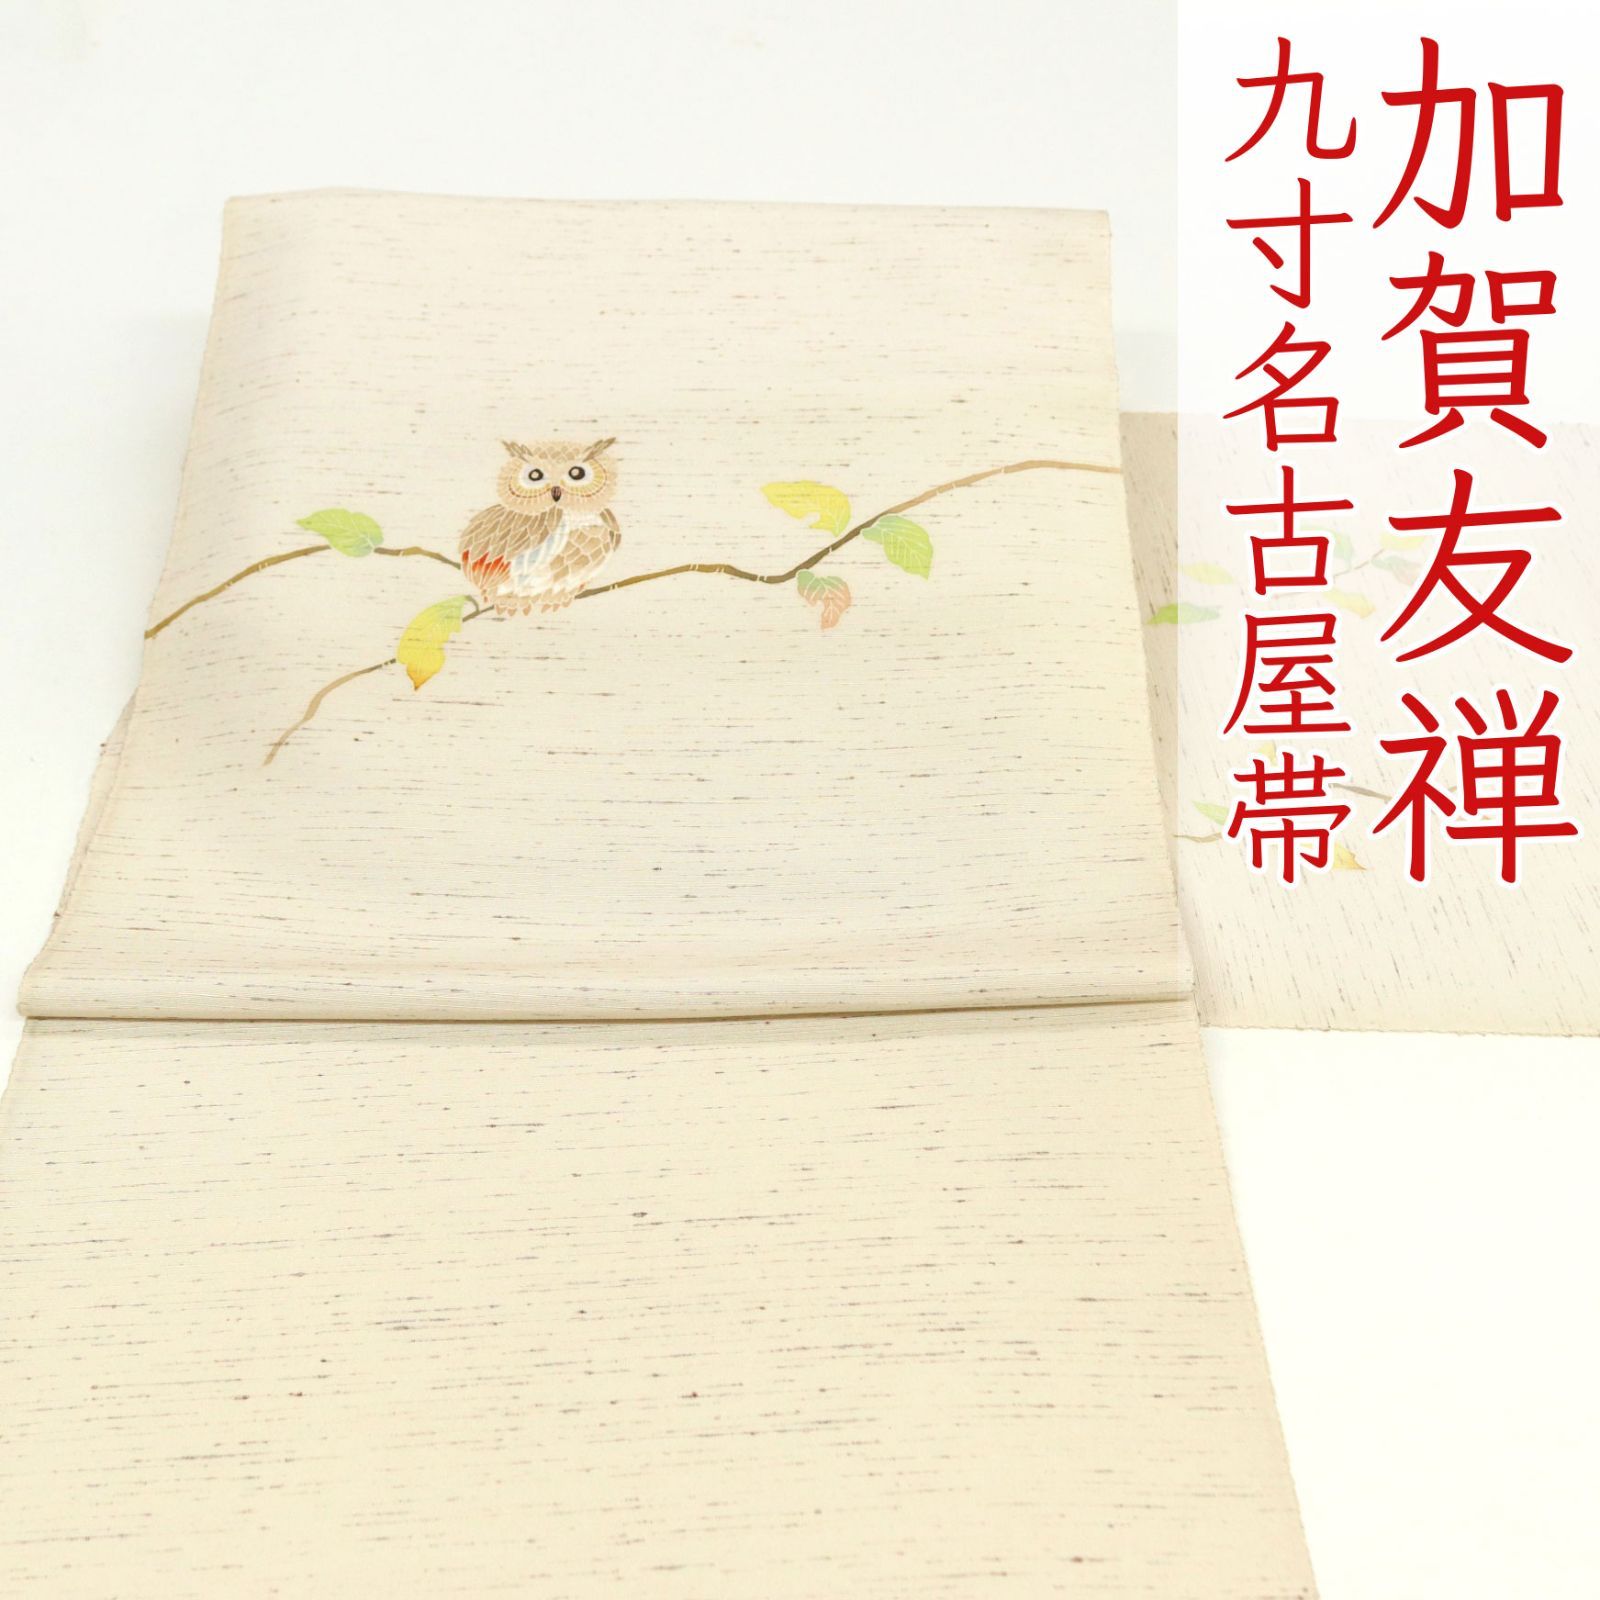 加賀友禅
九寸名古屋帯